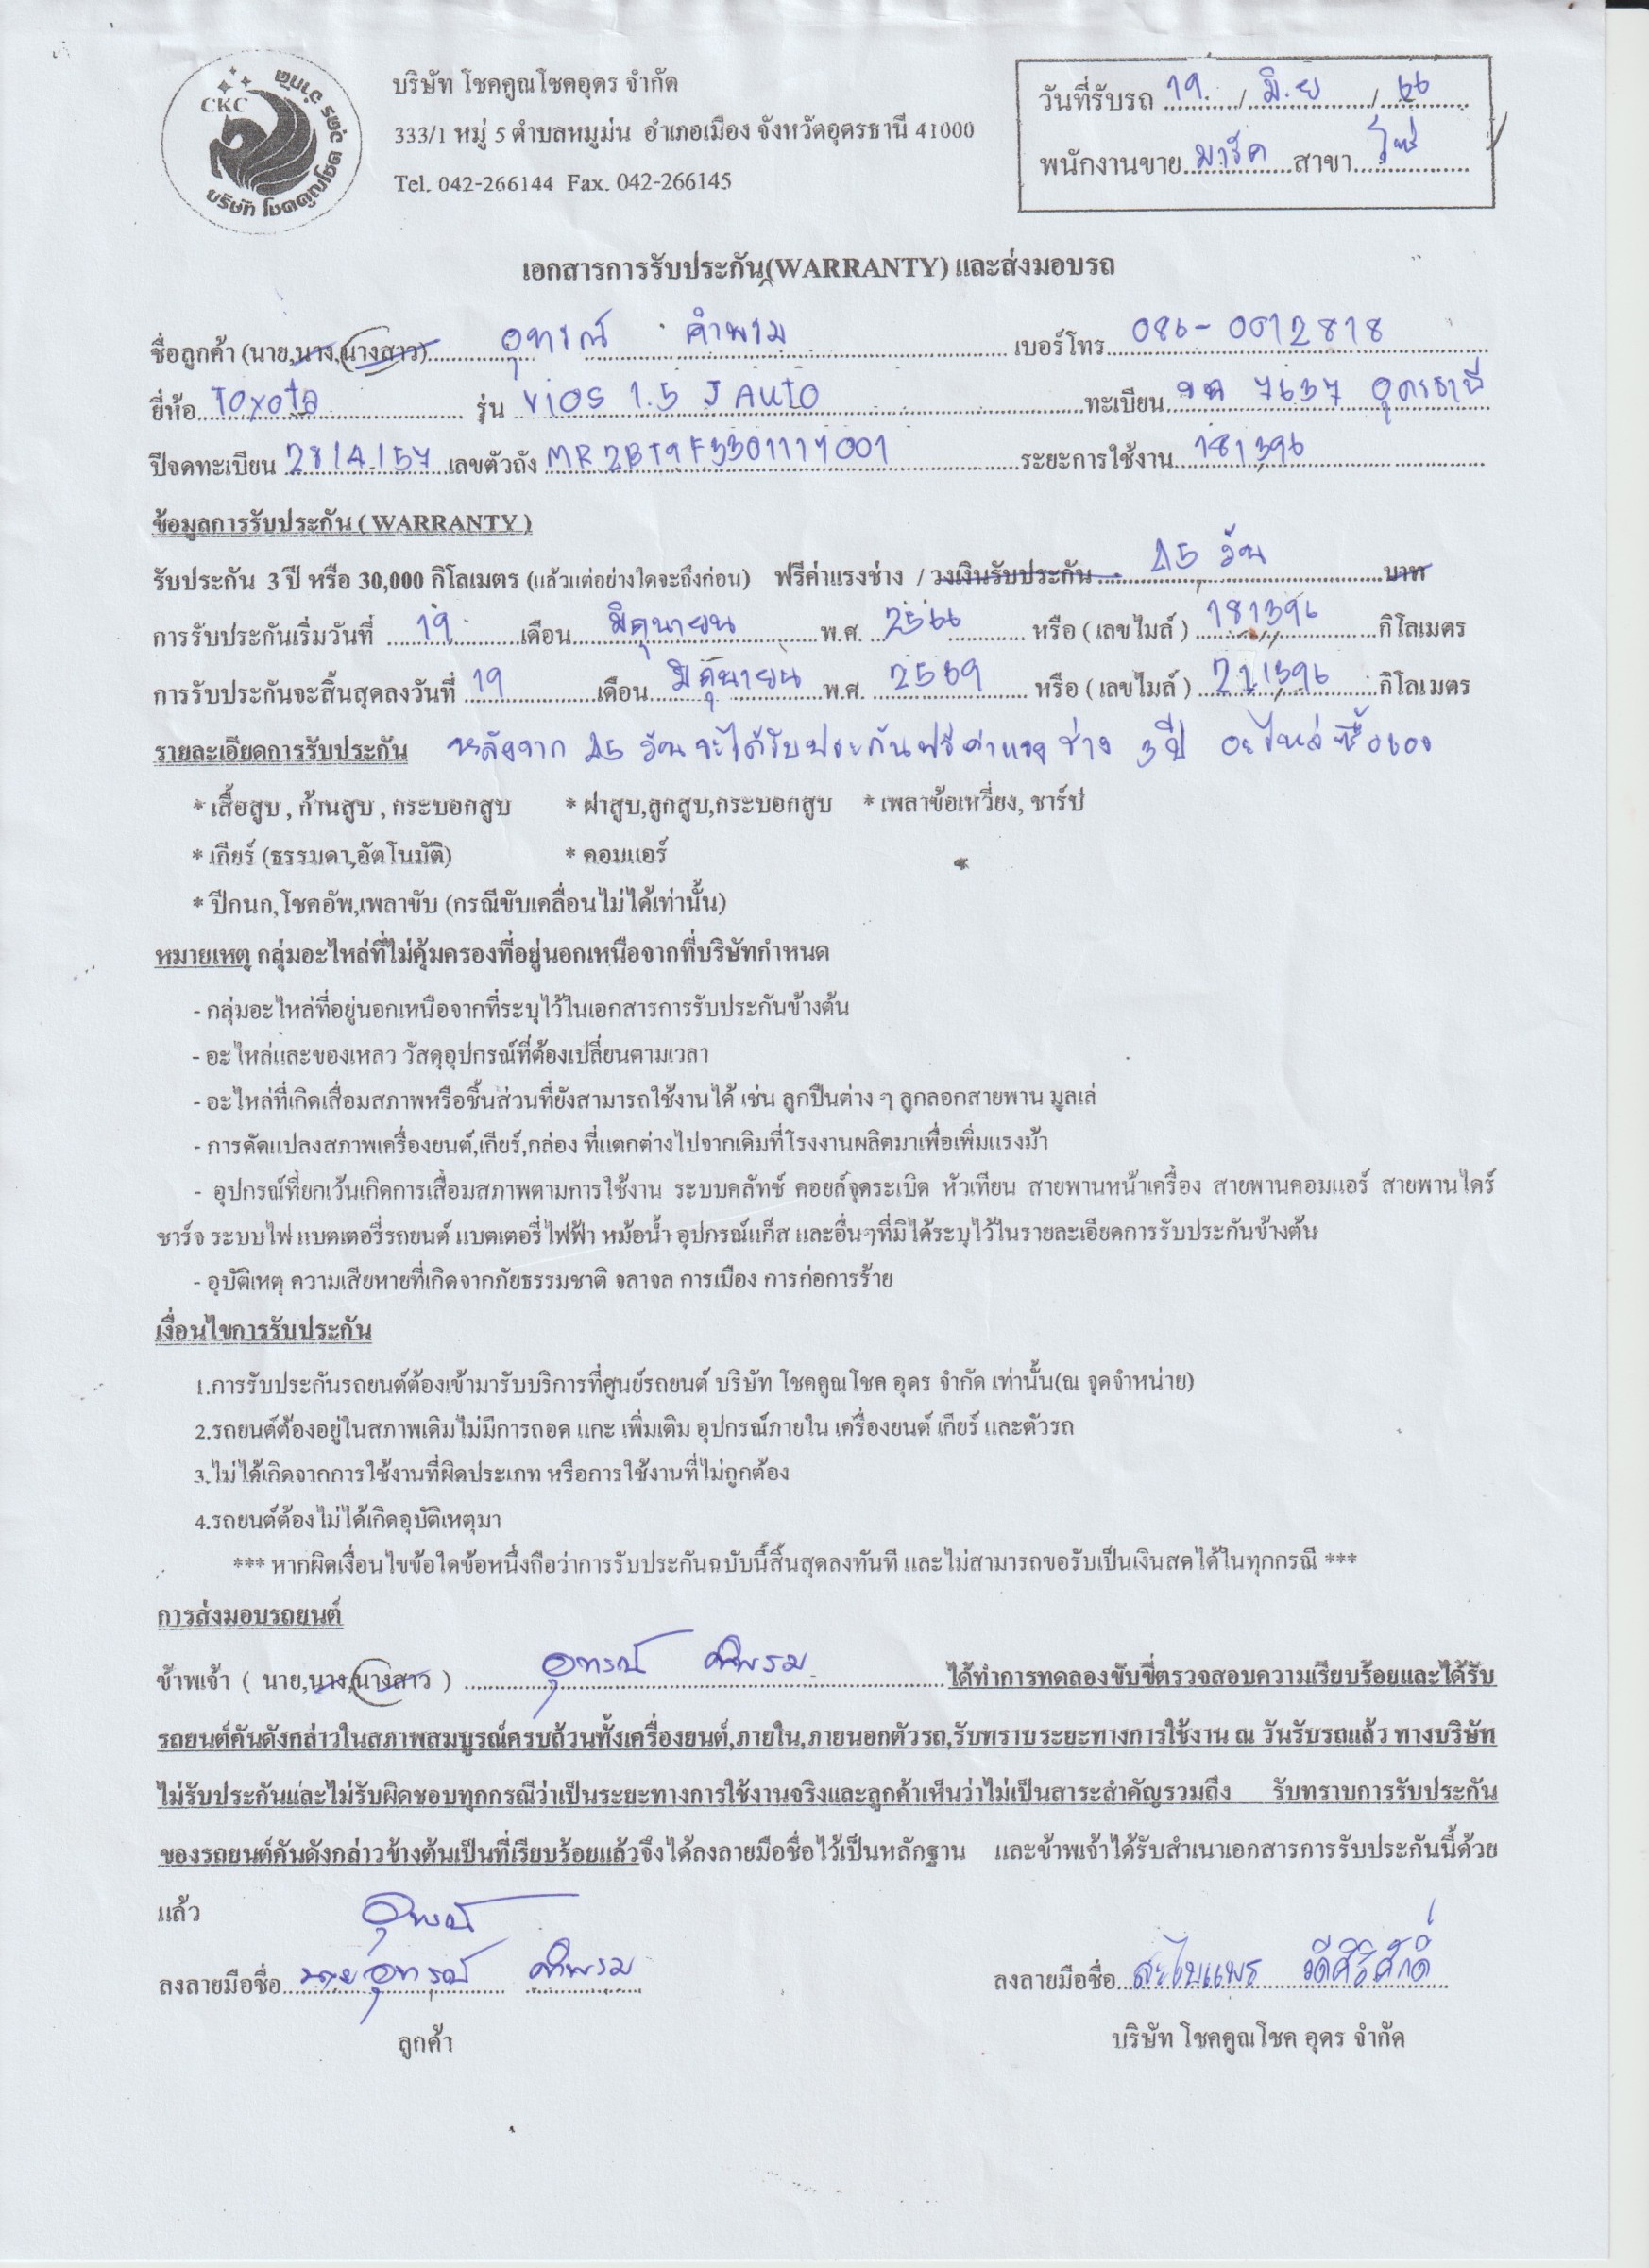 CKC
บริษัท โชคคูณโชค อุดร จำกัด
บริษัท โชคคูณโชคอุดร จำกัด
333/1 หมู่ 5 ตำบลหมูม่น อำเภอเมือง จังหวัดอุดรธานี 41000
Tel. 042-266144 Fax. 042-266145
วันที่รับรถ 19 / มิ.ย / 66
พนักงานขาย มาร์ค สาขา
เอกสารการรับประกัน(WARRANTY) และส่งมอบรถ
ชื่อลูกค้า (นาย,นาง,นางสาว) อุทรณ์ คำพรม เบอร์โทร 086-0612818
ยี่ห้อ Toyota รุ่น VIOS 1.5 J AUTO ทะเบียน 7637 อุดรธานี
ปีจดทะเบียน 28/4/57 เลขตัวถัง MR2BT9F3301117001 ระยะการใช้งาน 181,396
ข้อมูลการรับประกัน ( WARRANTY )
รับประกัน 3 ปี หรือ 30,000 กิโลเมตร (แล้วแต่อย่างใดจะถึงก่อน) ฟรีค่าแรงช่าง / วงเงินรับประกัน 15 วัน บาท
การรับประกันเริ่มวันที่ 19 เดือน มิถุนายน พ.ศ. 2566 หรือ ( เลขไมล์ ) 181,396 กิโลเมตร
การรับประกันจะสิ้นสุดลงวันที่ 19 เดือน มิถุนายน พ.ศ. 2569 หรือ ( เลขไมล์ ) 211,396 กิโลเมตร
รายละเอียดการรับประกัน หลังจาก 15 วันจะได้รับประกันฟรีค่าแรงช่าง 3 ปี อะไหล่ซื้อเอง
* เสื้อสูบ , ก้านสูบ , กระบอกสูบ * ฝาสูบ,ลูกสูบ,กระบอกสูบ * เพลาข้อเหวี่ยง, ชาร์ป
* เกียร์ (ธรรมดา,อัตโนมัติ) * คอมแอร์
* ปีกนก,โชคอัพ,เพลาขับ (กรณีขับเคลื่อนไม่ได้เท่านั้น)
หมายเหตุ กลุ่มอะไหล่ที่ไม่คุ้มครองที่อยู่นอกเหนือจากที่บริษัทกำหนด
- กลุ่มอะไหล่ที่อยู่นอกเหนือจากที่ระบุไว้ในเอกสารการรับประกันข้างต้น
- อะไหล่และของเหลว วัสดุอุปกรณ์ที่ต้องเปลี่ยนตามเวลา
- อะไหล่ที่เกิดเสื่อมสภาพหรือชิ้นส่วนที่ยังสามารถใช้งานได้ เช่น ลูกปืนต่าง ๆ ลูกลอกสายพาน มูลเล่
- การดัดแปลงสภาพเครื่องยนต์,เกียร์,กล่อง ที่แตกต่างไปจากเดิมที่โรงงานผลิตมาเพื่อเพิ่มแรงม้า
- อุปกรณ์ที่ยกเว้นเกิดการเสื่อมสภาพตามการใช้งาน ระบบคลัทช์ คอยล์จุดระเบิด หัวเทียน สายพานหน้าเครื่อง สายพานคอมแอร์ สายพานไดร์
ชาร์จ ระบบไฟ แบตเตอรี่รถยนต์ แบตเตอรี่ไฟฟ้า หม้อน้ำ อุปกรณ์แก็ส และอื่นๆที่มิได้ระบุไว้ในรายละเอียดการรับประกันข้างต้น
- อุบัติเหตุ ความเสียหายที่เกิดจากภัยธรรมชาติ จลาจล การเมือง การก่อการร้าย
เงื่อนไขการรับประกัน
1.การรับประกันรถยนต์ต้องเข้ามารับบริการที่ศูนย์รถยนต์ บริษัท โชคคูณโชค อุดร จำกัด เท่านั้น(ณ จุดจำหน่าย)
2.รถยนต์ต้องอยู่ในสภาพเดิมไม่มีการถอด แกะ เพิ่มเติม อุปกรณ์ภายใน เครื่องยนต์ เกียร์ และตัวรถ
3.ไม่ได้เกิดจากการใช้งานที่ผิดประเภท หรือการใช้งานที่ไม่ถูกต้อง
4.รถยนต์ต้องไม่ได้เกิดอุบัติเหตุมา
*** หากผิดเงื่อนไขข้อใดข้อหนึ่งถือว่าการรับประกันฉบับนี้สิ้นสุดลงทันที และไม่สามารถขอรับเป็นเงินสดได้ในทุกกรณี ***
การส่งมอบรถยนต์
ข้าพเจ้า ( นาย,นาง,นางสาว ) อุทรณ์ คำพรม ได้ทำการทดลองขับขี่ตรวจสอบความเรียบร้อยและได้รับ
รถยนต์คันดังกล่าวในสภาพสมบูรณ์ครบถ้วนทั้งเครื่องยนต์,ภายใน,ภายนอกตัวรถ,รับทราบระยะทางการใช้งาน ณ วันรับรถแล้ว ทางบริษัท
ไม่รับประกันและไม่รับผิดชอบทุกกรณีว่าเป็นระยะทางการใช้งานจริงและลูกค้าเห็นว่าไม่เป็นสาระสำคัญรวมถึง รับทราบการรับประกัน
ของรถยนต์คันดังกล่าวข้างต้นเป็นที่เรียบร้อยแล้วจึงได้ลงลายมือชื่อไว้เป็นหลักฐาน และข้าพเจ้าได้รับสำเนาเอกสารการรับประกันนี้ด้วย
แล้ว อุทรณ์
ลงลายมือชื่อ นายอุทรณ์ คำพรม ลงลายมือชื่อ
ลูกค้า บริษัท โชคคูณโชค อุดร จำกัด